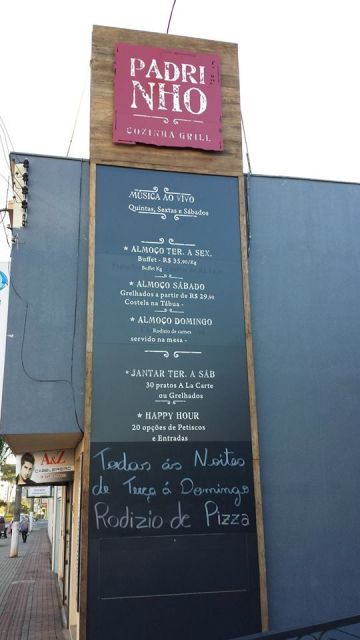 PADRI
NHO
COZINHA GRILL
MÚSICA AO VIVO
Quintas, Sextas e Sábados
★ ALMOÇO TER. A SEX.
Buffet - R$ 35,90/Kg
Buffet Kg
★ ALMOÇO SÁBADO
Grelhados a partir de R$ 29,90
Costela na Tábua -
★ ALMOÇO DOMINGO
Rodizio de carnes
servido na mesa -
★ JANTAR TER. A SÁB
30 pratos A La Carte
ou Grelhados
★ HAPPY HOUR
20 opções de Petiscos
e Entradas
Todas ás Noites
de Terça á Domingo
Rodizio de Pizza
A&Z
CABELEIREIRO